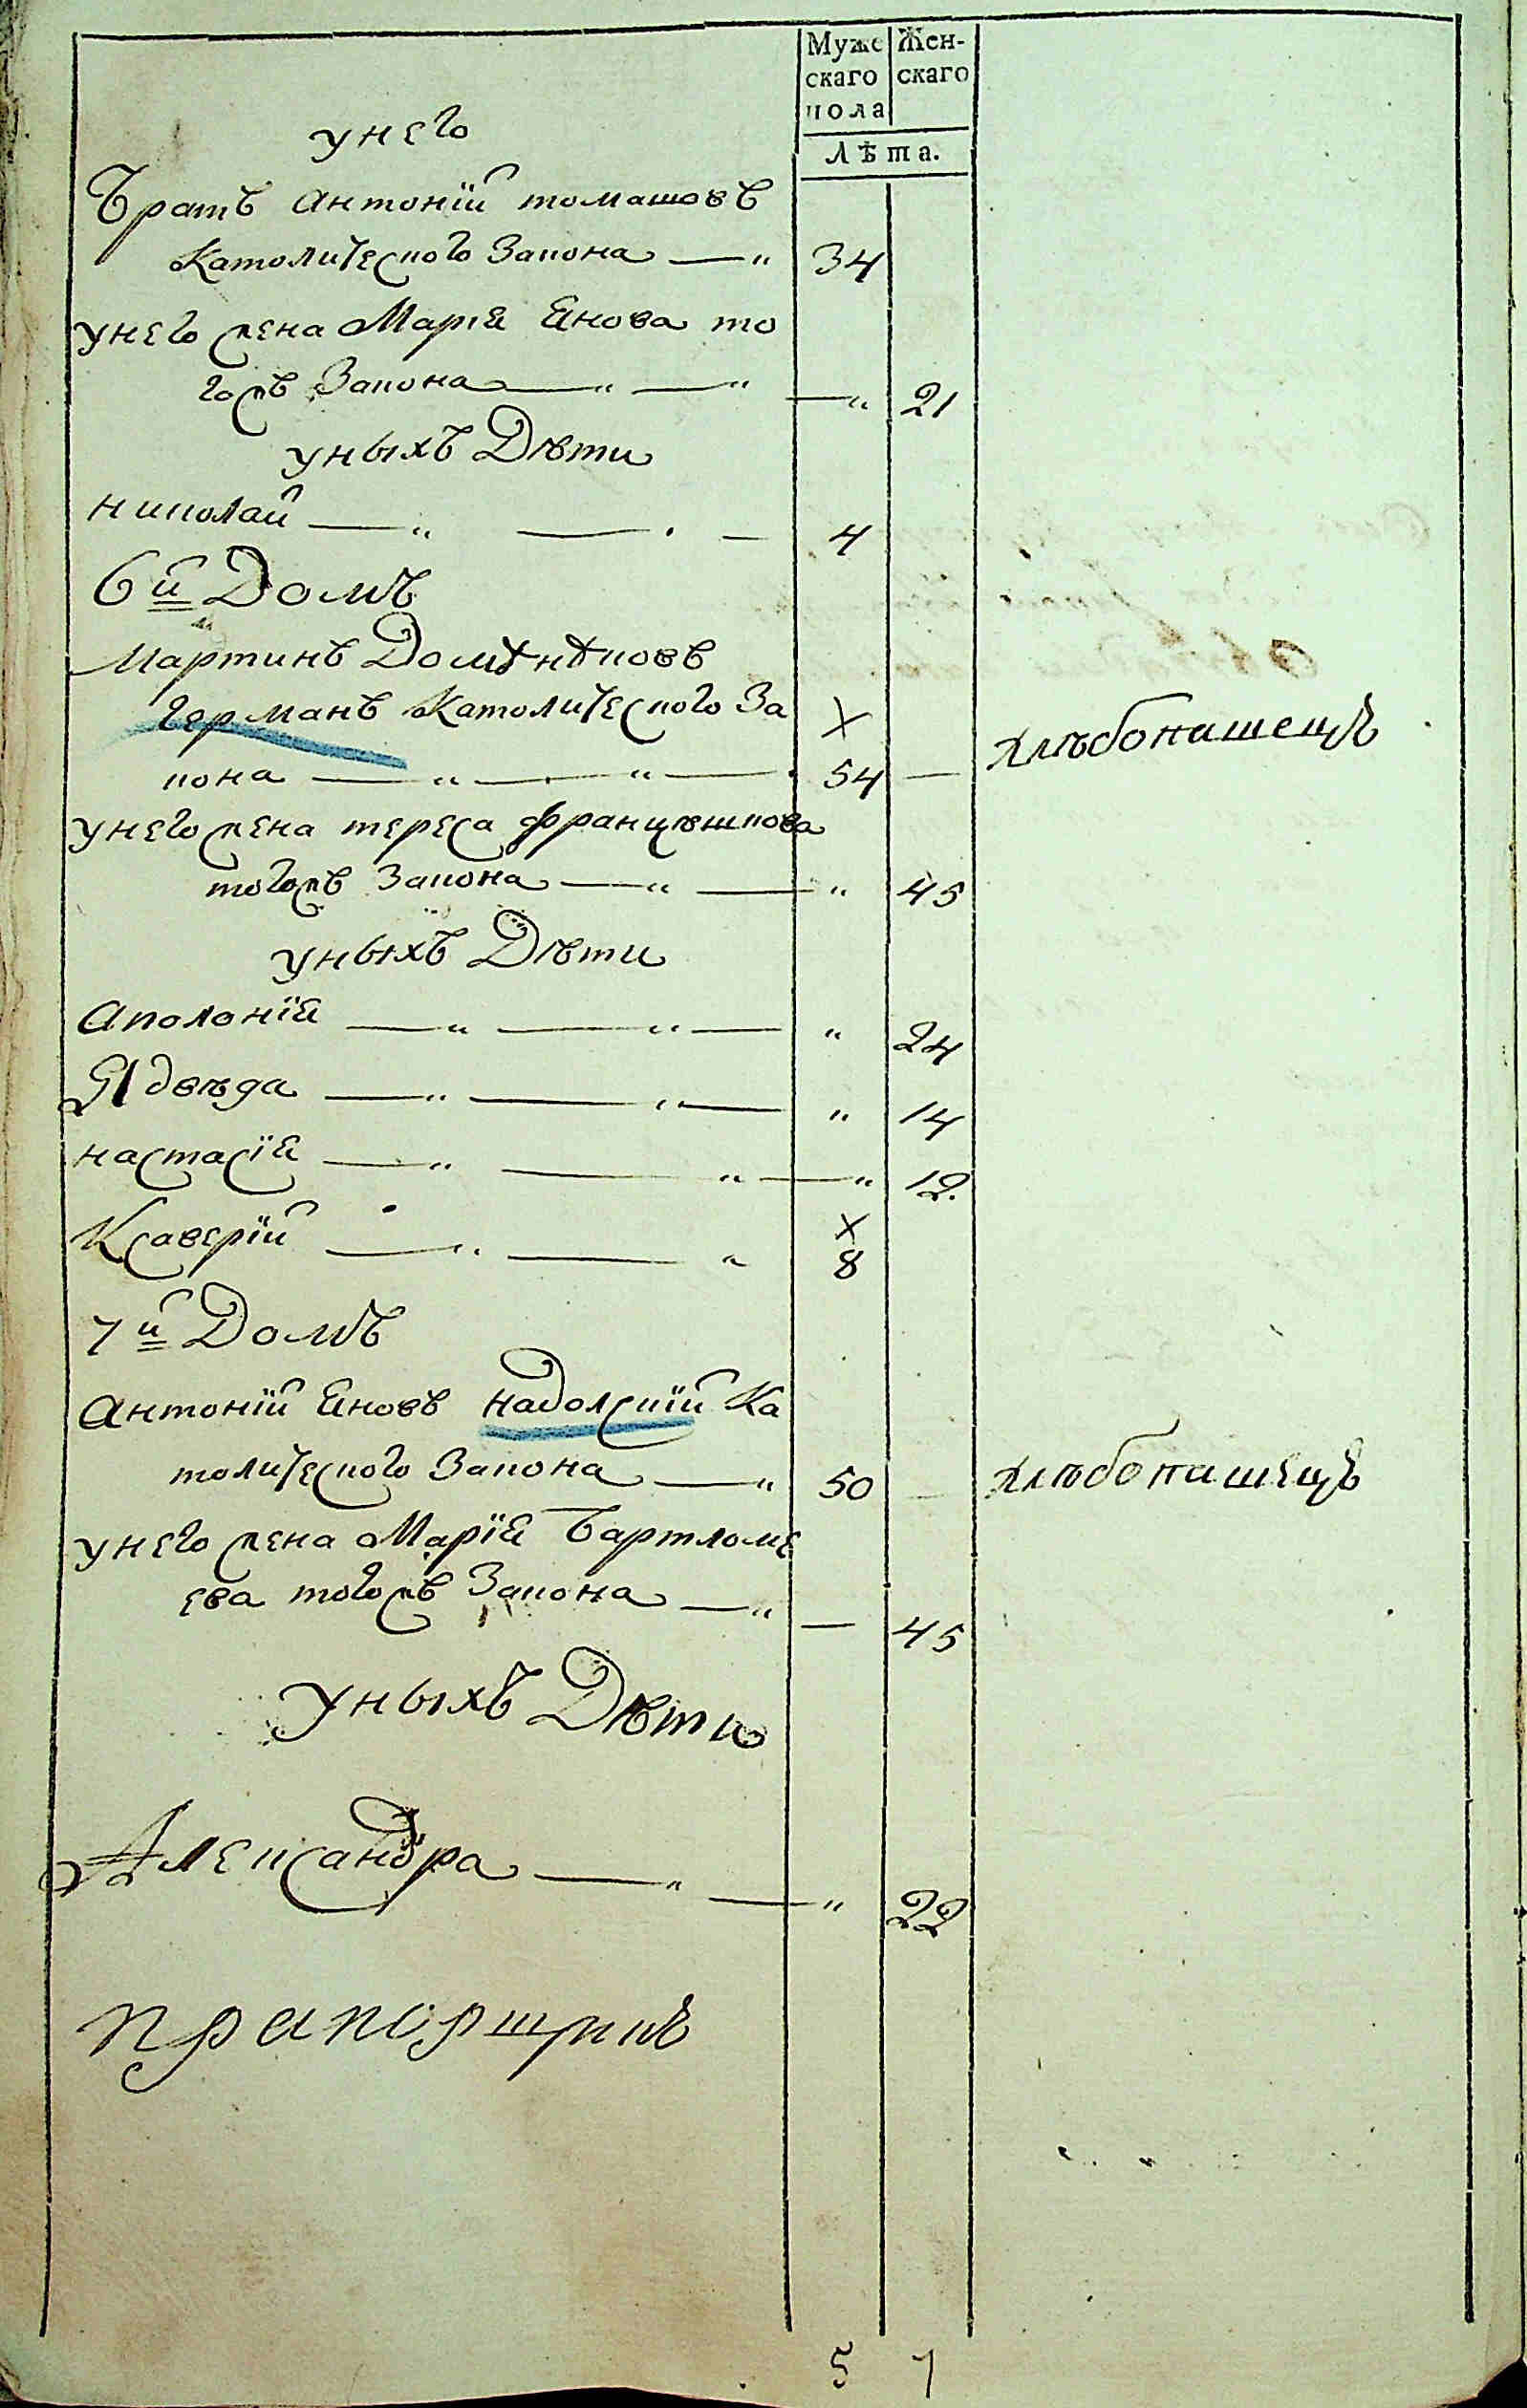 Муже Жен-
скаго скаго
пола
Лѣта.
унего
Братъ Антонїй томашовъ
Католического Закона — " 34
унего жена Марїя Янова то
гожъ Закона — " — " — " 21
уныхъ Дѣти
николай — " — . — 4
6й Домъ
Мартинъ Домѣнѣковъ
Германъ Католического За Х хлѣбопашецъ
кона — " — " — 54 —
унего жена тереса Францѣшкова
тогожъ Закона — " — " 45
уныхъ Дѣти
Аполонїя — " — " — " 24
Ядвѣга — " — " — " 14
настасїя — " — " — " 12.
Ксаверїй — " — " Х
8
7й Домъ
Антонїй Яновъ надолскїй Ка
толического Закона — " 50 — хлѣбопашецъ
унего жена Марїя Бартломе
ева тогожъ Закона — " — 45
уныхъ Дѣти
Александра — " — " 22
прапорщикъ
5 7